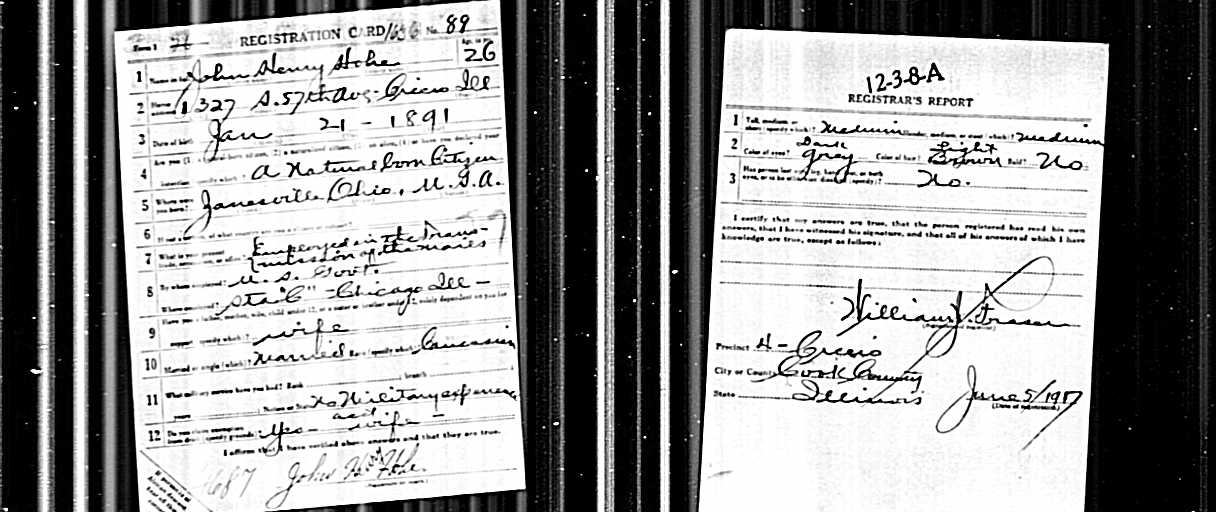 Form 1 REGISTRATION CARD 1656 No. 89
1 John Henry Hohe 26
2 1327 S. 57th Ave - Cicero Ill
3 Date of birth Jan 21 - 1891
4 A Natural born Citizen
5 Janesville, Ohio, U.S.A.
6
7 Employed in the Trans-
mission of the mails
8 By whom employed? U. S. Govt.
Where employed? Sta "C" - Chicago Ill -
9 Have you a father, mother, wife, child under 12, or a sister or brother under 12, solely dependent on you for
support, specify which? wife
10 Married or single (which)? Married Race (specify which)? Caucasian
11 What military service have you had? Rank branch
years No Military experience
12 Do you claim exemption
from draft (specify grounds)? Yes - wife -
I affirm that I have verified above answers and that they are true.
687 John Hohe
12-3-8-A
REGISTRAR'S REPORT
1 Tall, medium, or
short (specify which)? Medium Slender, medium, or stout (which)? Medium
2 Color of eyes? Dark grey Color of hair? Light Brown Bald? No.
3 Has person lost arm, leg, hand, foot, or both
eyes, or is he otherwise disabled (specify)? No.
I certify that my answers are true, that the person registered has read his own
answers, that I have witnessed his signature, and that all of his answers of which I have
knowledge are true, except as follows:
William J. Fraser
(Signature of registrar)
Precinct 4 - Cicero
City or County Cook County
State Illinois June 5/1917
(Date of registration)